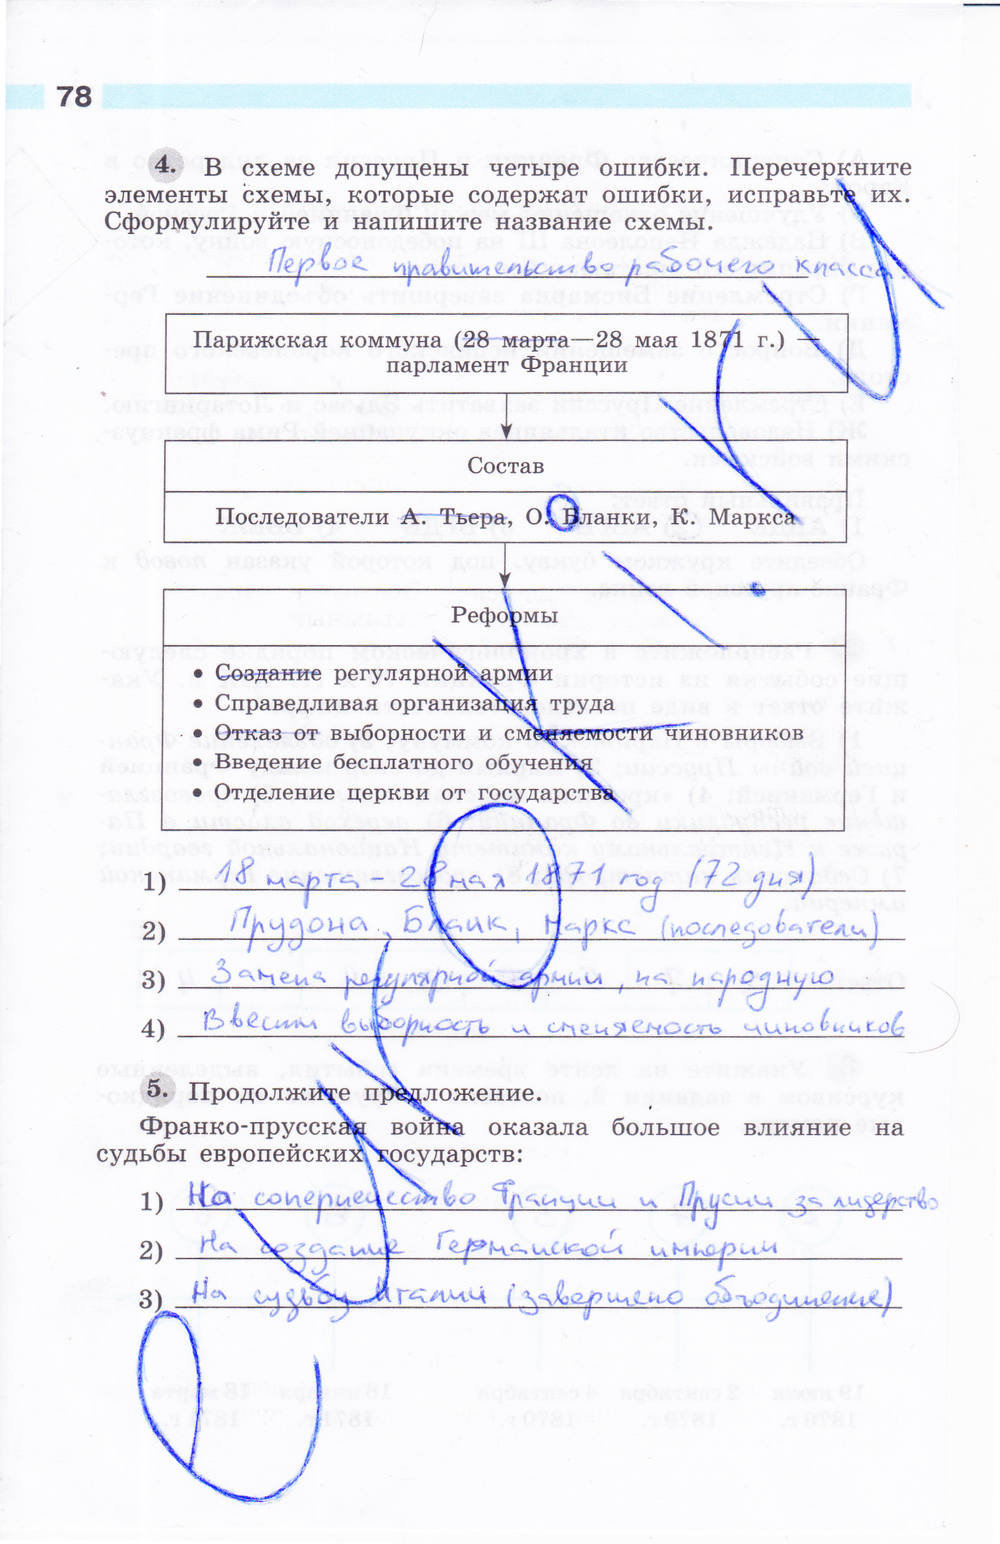 78
4. В схеме допущены четыре ошибки. Перечеркните
элементы схемы, которые содержат ошибки, исправьте их.
Сформулируйте и напишите название схемы.
Первое правительство рабочего класса.
Парижская коммуна (28 марта—28 мая 1871 г.) —
парламент Франции
Состав
Последователи А. Тьера, О. Бланки, К. Маркса
Реформы
• Создание регулярной армии
• Справедливая организация труда
• Отказ от выборности и сменяемости чиновников
• Введение бесплатного обучения
• Отделение церкви от государства
1) 18 марта - 28 мая 1871 год (72 дня)
2) Прудона, Бланк, Маркса (последователи)
3) Замена регулярной армии, на народную
4) Ввести выборность и сменяемость чиновников
5. Продолжите предложение.
Франко-прусская война оказала большое влияние на
судьбы европейских государств:
1) На соперничество Франции и Прусии за лидерство
2) На создание Германской империи
3) На судьбу Италии (завершено объединение)